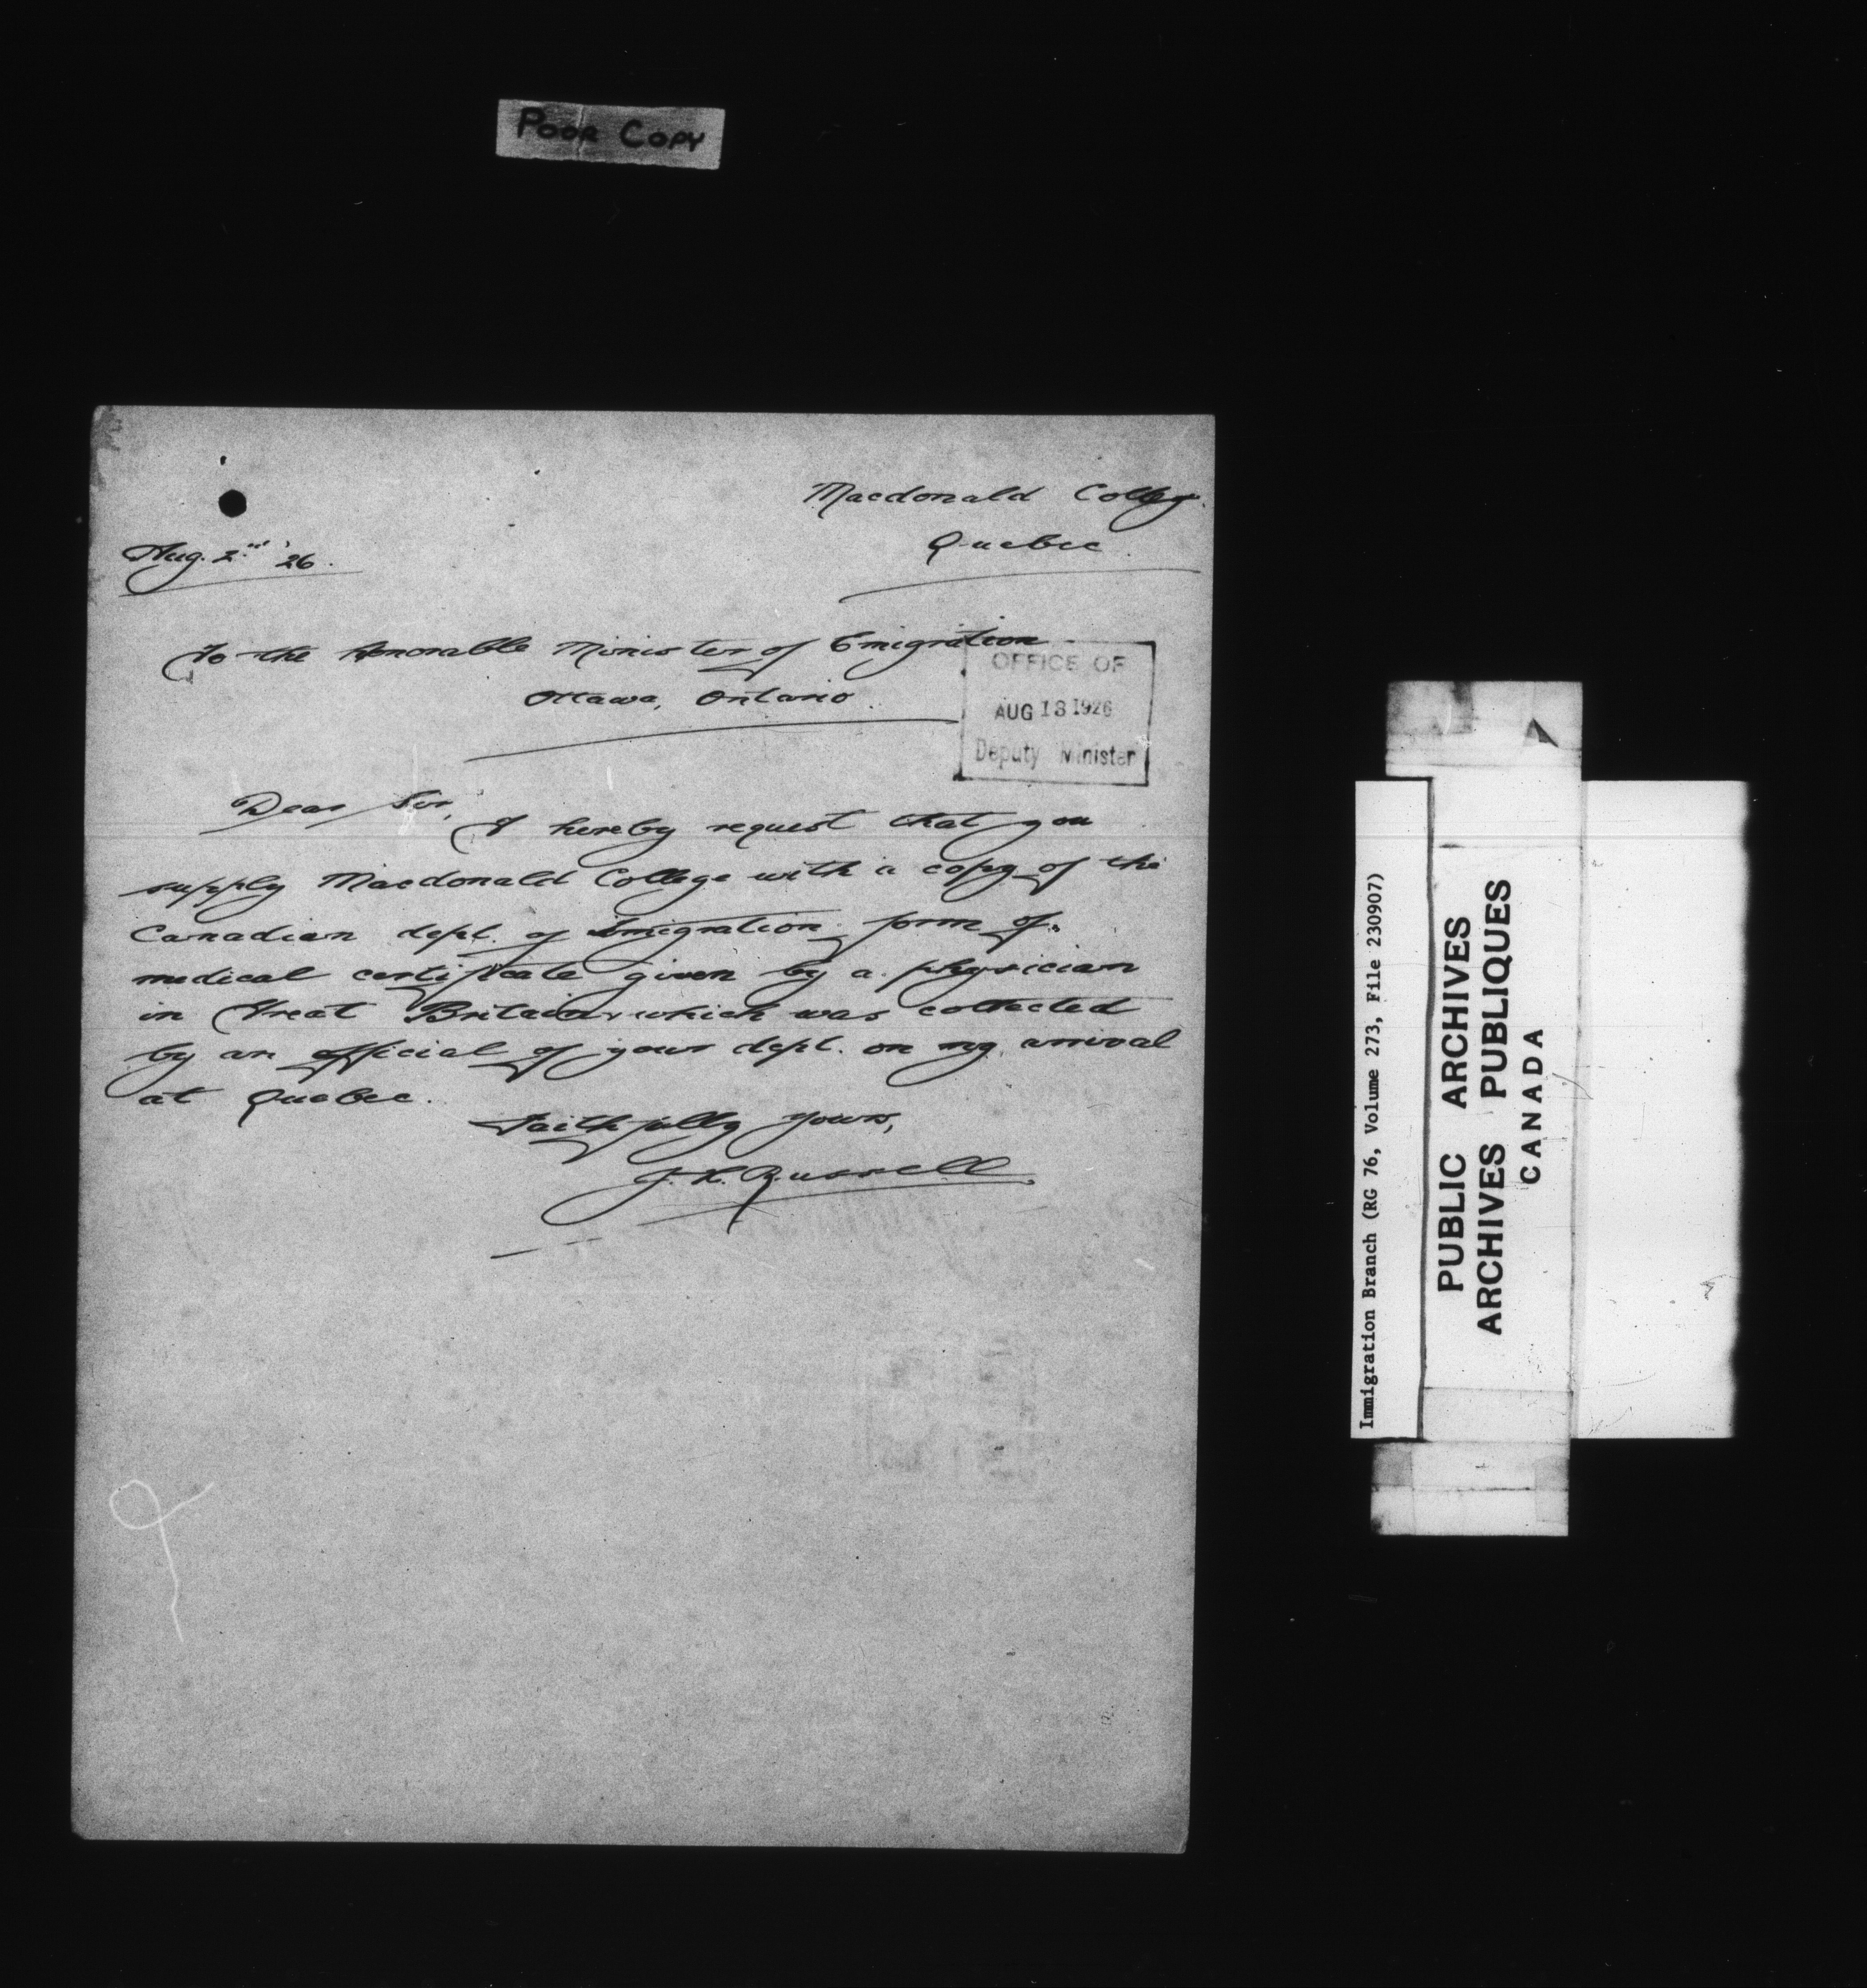 POOR COPY
Macdonald College.
Quebec.
Aug. 2nd '26.
To the Honorable Minister of Emigration
Ottawa, Ontario.
OFFICE OF
AUG 13 1926
Deputy Minister
Dear Sir,
I hereby request that you
supply Macdonald College with a copy of the
Canadian dept. of Imigration form of
medical certificate given by a physician
in Great Britain which was collected
by an official of your dept. on my arrival
at Quebec.
Faithfully yours,
J. H. Russell
Immigration Branch (RG 76, Volume 273, File 230907)
PUBLIC ARCHIVES
ARCHIVES PUBLIQUES
CANADA